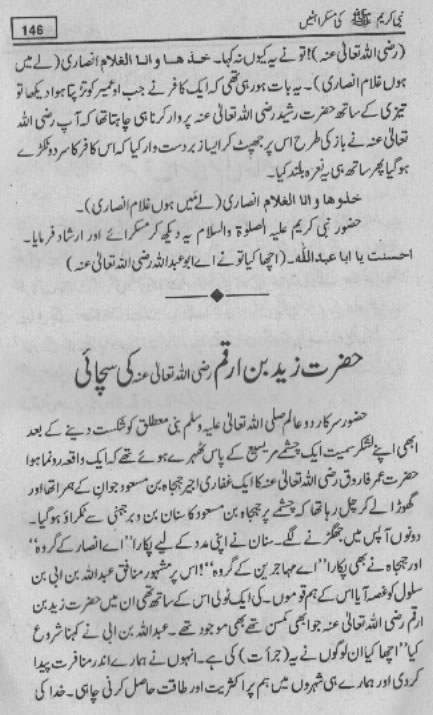 نبی کریم ﷺ کی مسکراہٹیں
146
(رضی اللہ تعالیٰ عنہ)! تو نے یہ کیوں نہ کہا۔ خذھا وانا الغلام انصاری (لے میں
ہوں غلام انصاری)۔ یہ بات ہو رہی تھی کہ ایک کافر نے جب ابو عمیر کو تڑپتا ہوا دیکھا تو
تیزی کے ساتھ حضرت رشید رضی اللہ تعالیٰ عنہ پر وار کرنا ہی چاہتا تھا کہ آپ رضی اللہ
تعالیٰ عنہ نے باز کی طرح اس پر جھپٹ کر ایسا زبردست وار کیا کہ اس کافر کا سر دو ٹکڑے
ہو گیا پھر ساتھ ہی یہ نعرہ بلند کیا۔
خلوھا وانا الغلام انصاری (لے میں ہوں غلام انصاری)۔
حضور نبی کریم علیہ الصلوۃ والسلام یہ دیکھ کر مسکرائے اور ارشاد فرمایا۔
احسنت یا ابا عبداللہ۔ (اچھا کیا تو نے اے ابو عبداللہ رضی اللہ تعالیٰ عنہ)
حضرت زید بن ارقم رضی اللہ تعالیٰ عنہ کی سچائی
حضور سرکار دو عالم صلی اللہ تعالیٰ علیہ وسلم بنی مصطلق کو شکست دینے کے بعد
ابھی اپنے لشکر سمیت ایک چشمے مریسیع کے پاس ٹھہرے ہوئے تھے کہ ایک واقعہ رونما ہوا
حضرت عمر فاروق رضی اللہ تعالیٰ عنہ کا ایک غفاری اجیر جہجاہ بن مسعود جو ان کے ہمراہ تھا اور
گھوڑا لے کر چل رہا تھا کہ چشمے پر جہجاہ بن مسعود کا سنان بن وبر جہنی سے ٹکراؤ ہو گیا۔
دونوں آپس میں جھگڑنے لگے۔ سنان نے اپنی مدد کے لیے پکارا "اے انصار کے گروہ"
اور جہجاہ نے بھی پکارا "اے مہاجرین کے گروہ"! اس پر مشہور منافق عبداللہ بن ابی بن
سلول کو غصہ آیا اس کے ہم قوموں۔ کی ایک ٹولی اس کے ساتھ تھی ان میں حضرت زید بن
ارقم رضی اللہ تعالیٰ عنہ جو ابھی کمسن تھے بھی موجود تھے۔ عبداللہ بن ابی نے کہنا شروع
کیا "اچھا کیا ان لوگوں نے یہ (جرأت) کی ہے۔ انہوں نے ہمارے اندر منافرت پیدا
کر دی اور ہمارے ہی شہروں میں ہم پر اکثریت اور طاقت حاصل کرنی چاہی۔ خدا کی